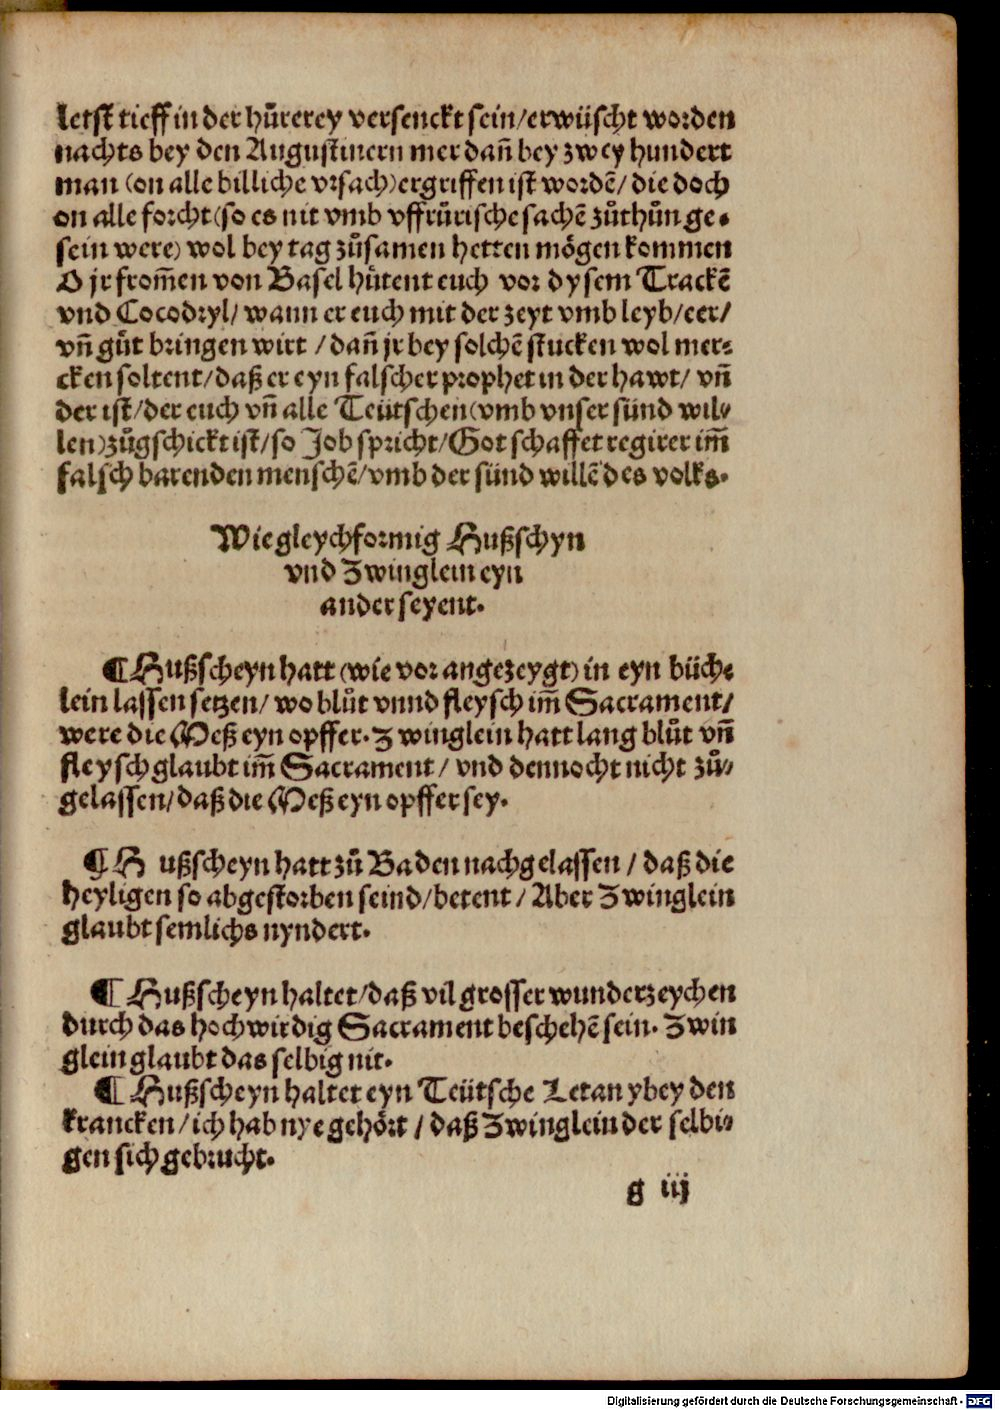 letst tieff in der hůrerey versenckt sein/erwüscht worden
nachts bey den Augustinern mer dañ bey zwey hundert
man (on alle billiche vrsach) ergriffen ist wordẽ/ die doch
on alle forcht (so es nit vmb vffrůrische sachẽ zůthůn ge⸗
sein were) wol bey tag zůsamen hetten mögen kommen
O jr from̃en von Basel hůtent euch vor dysem Trackẽ
vnd Cocodryl/ wann er euch mit der zeyt vmb leyb/eer/
vñ gůt bringen wirt / dañ jr bey solchẽ stucken wol mer⸗
cken soltent/ daß er eyn falscher prophet in der hawt/ vñ
der ist/ der euch vñ alle Teütschen (vmb vnser sünd wil⸗
len) zůgschickt ist/ so Job spricht/ Got schaffet regirer im̃
falsch barenden menschẽ/ vmb der sünd willẽ des volks.
Wie gleychformig Hußschyn
vnd Zwinglein eyn
ander seyent.
¶ Hußscheyn hatt (wie vor angezeygt) in eyn büch⸗
lein lassen setzen/ wo blůt vnnd fleysch im̃ Sacrament/
were die Meß eyn opffer. Zwinglein hatt lang blůt vñ
fleysch glaubt im̃ Sacrament / vnd dennocht nicht zů⸗
gelassen/ daß die Meß eyn opffer sey.
¶ Hußscheyn hatt zů Baden nachgelassen / daß die
heyligen so abgestorben seind/ betent / Aber Zwinglein
glaubt semlichs nyndert.
¶ Hußscheyn haltet/ daß vil grosser wunderzeychen
durch das hochwirdig Sacrament beschehẽ sein. Zwin
glein glaubt das selbig nit.
¶ Hußscheyn haltet eyn Teütsche Letany bey den
krancken/ ich hab nye gehört / daß Zwinglein der selbi⸗
gen sich gebrucht.
g iij
Digitalisierung gefördert durch die Deutsche Forschungsgemeinschaft - DFG